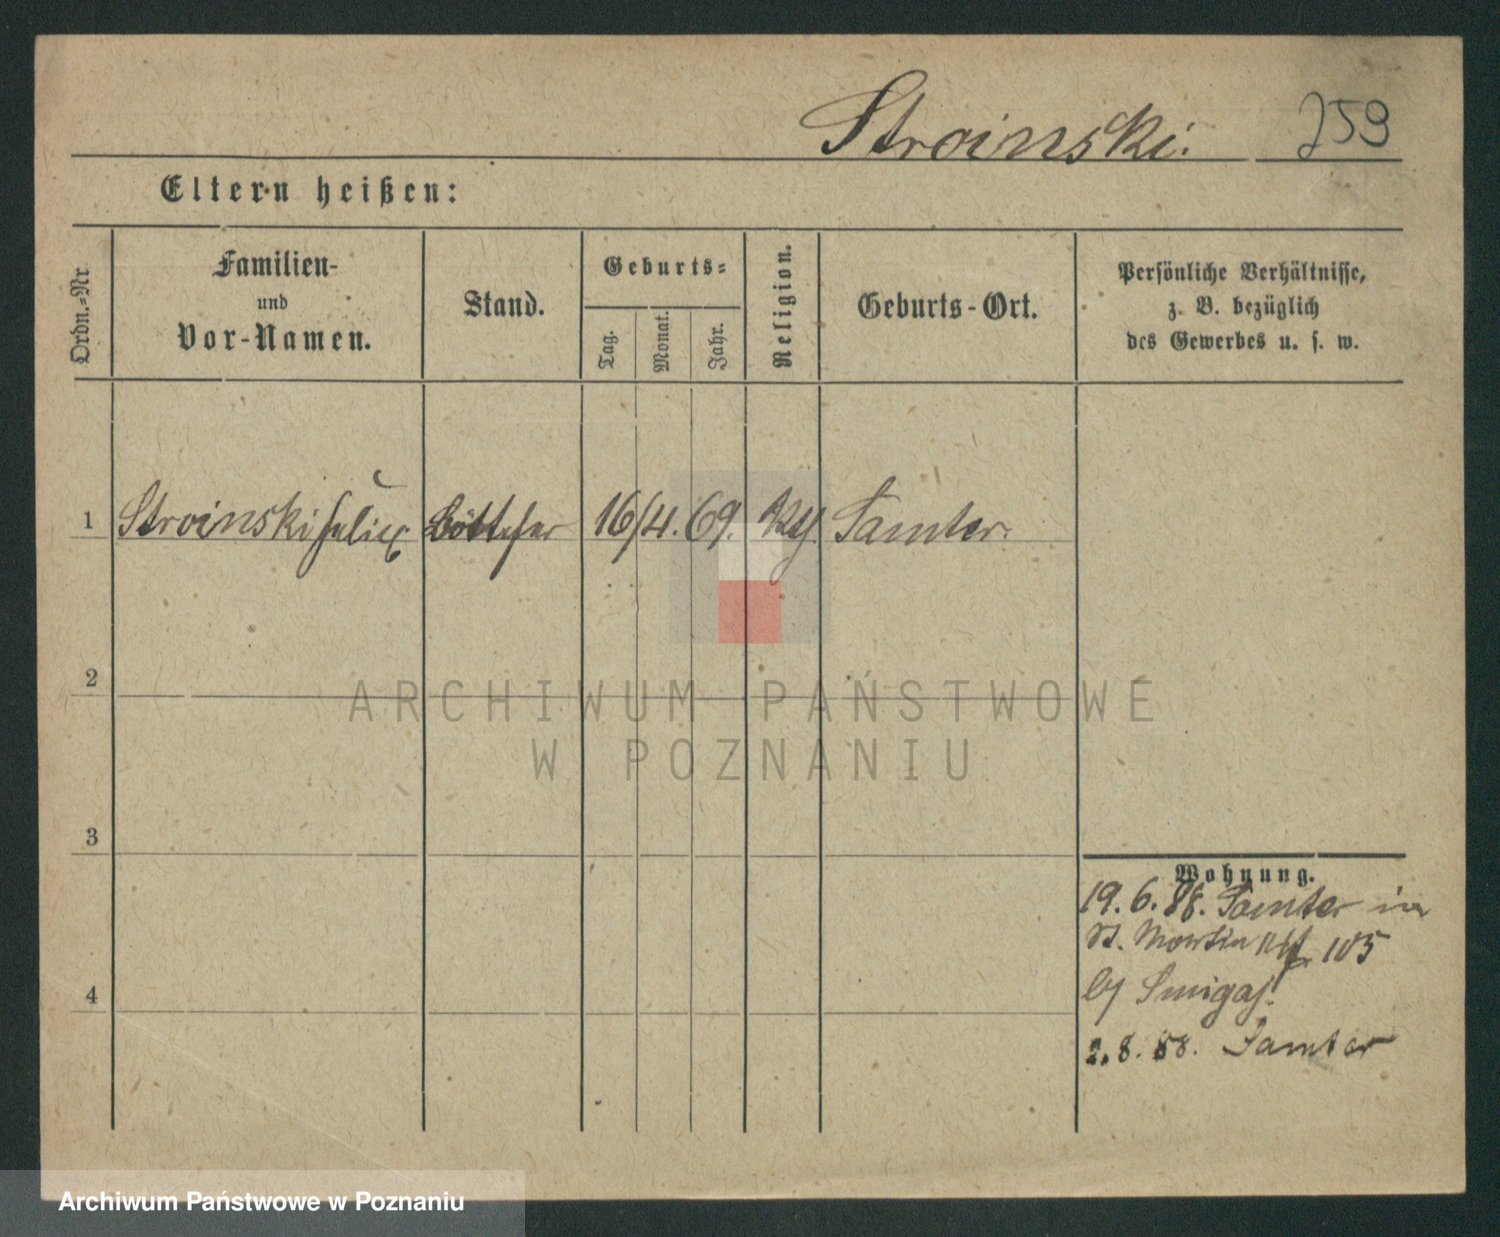 Stroinski. 259
Eltern heißen:
Ordn.=Nr
Familien-
und
Vor-Namen.
Stand.
Geburts=
Tag.
Monat.
Jahr.
Religion.
Geburts-Ort.
Persönliche Verhältnisse,
z. B. bezüglich
des Gewerbes u. s. w.
1 Stroinski Felix Böttcher 16/4. 69. Samter.
2
ARCHIWUM PAŃSTWOWE
W POZNANIU
3
Wohnung.
19. 6. 88. Samter in
St. Martin 105
4
by Smigaj.
2. 8. 88. Samter
Archiwum Państwowe w Poznaniu